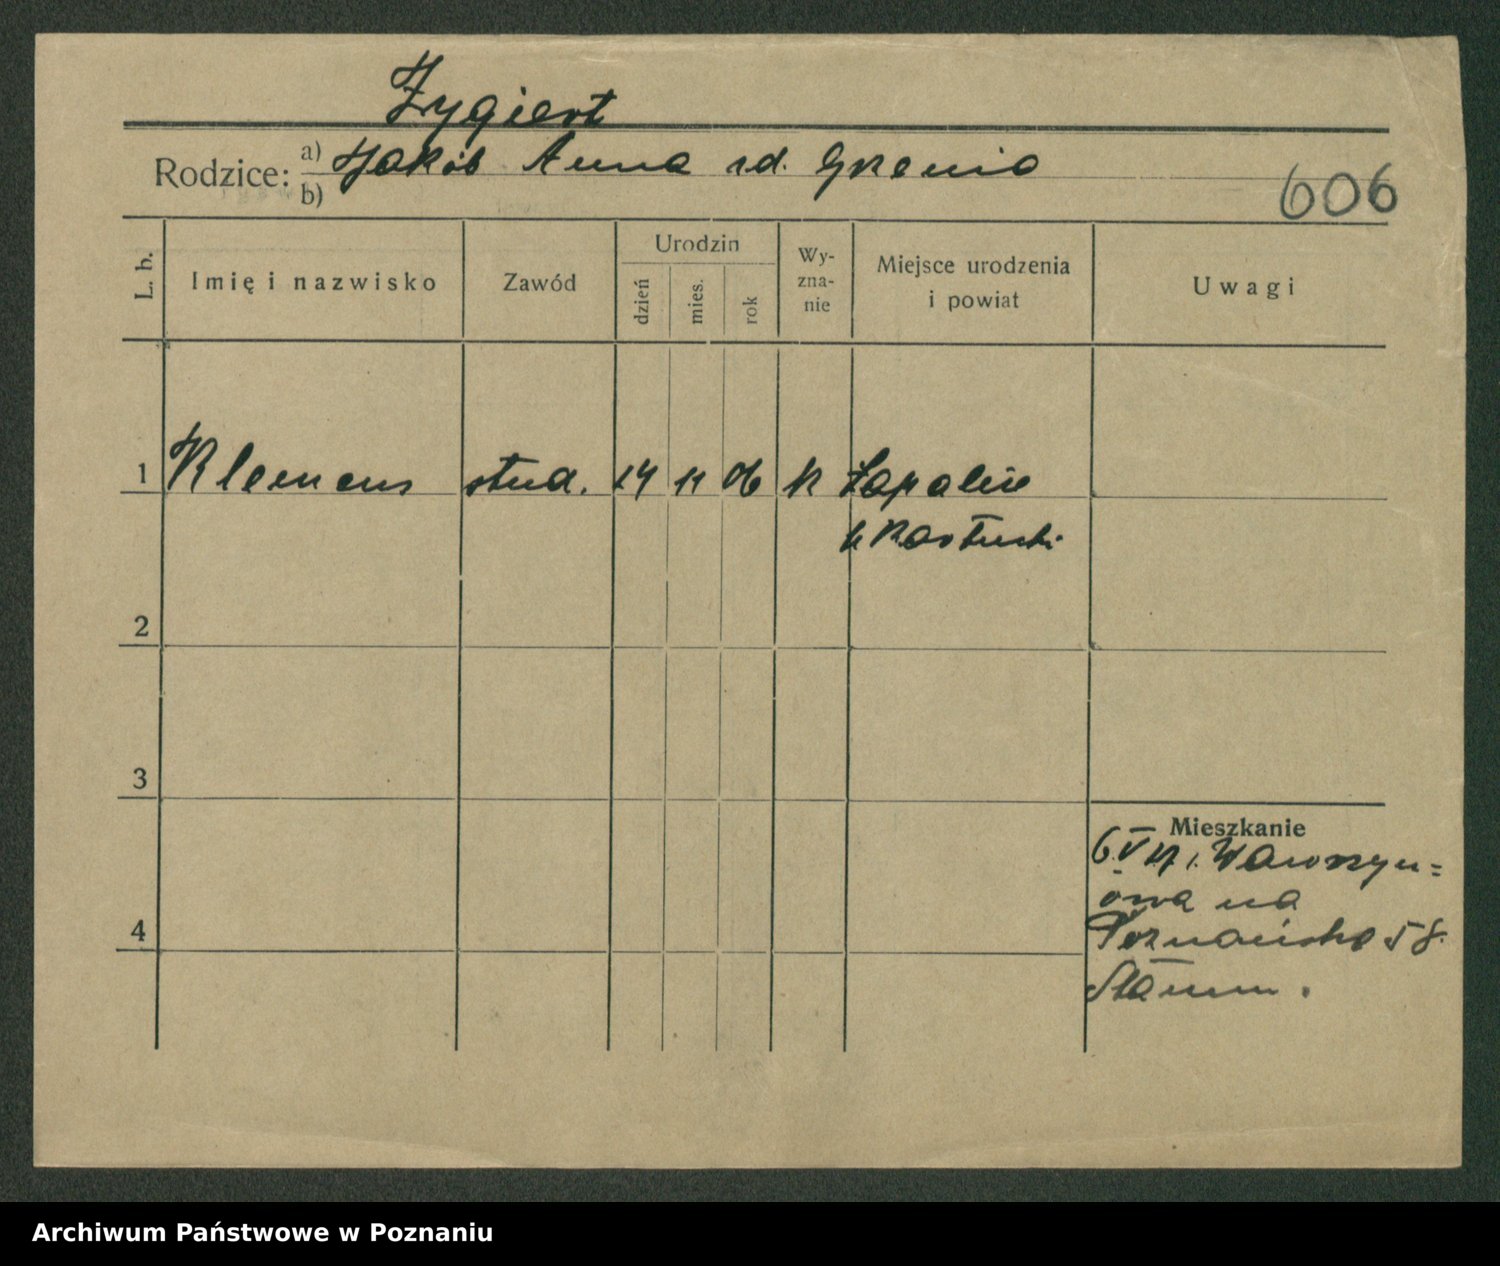 Zygiert
Rodzice: a) Jakób Anna rd. Grenia
b)
606
L. b.
Imię i nazwisko
Zawód
Urodzin
dzień
mies.
rok
Wy-
zna-
nie
Miejsce urodzenia
i powiat
Uwagi
1 Klemens stud. 14 11 06 k Łapalice
k Kartuski
2
3
4
Mieszkanie
6.V i. Wawrzyn=
owa na
Poznańska 58.
Archiwum Państwowe w Poznaniu